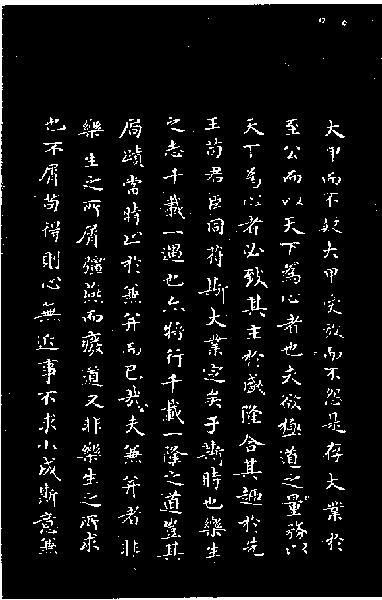 大甲而不疑大甲受放而不怨是存大業於
至公而以天下為心者也夫欲極道之量務以
天下為心者必致其主於盛隆合其趣於先
王苟君臣同符斯大業定矣于斯時也樂生
之志千載一遇也亦將行千載一隆之道豈其
局蹟當時止於兼并而已哉夫兼并者非
樂生之所屑彊燕而廢道又非樂生之所求
也不屑苟得則心無近事不求小成斯意無